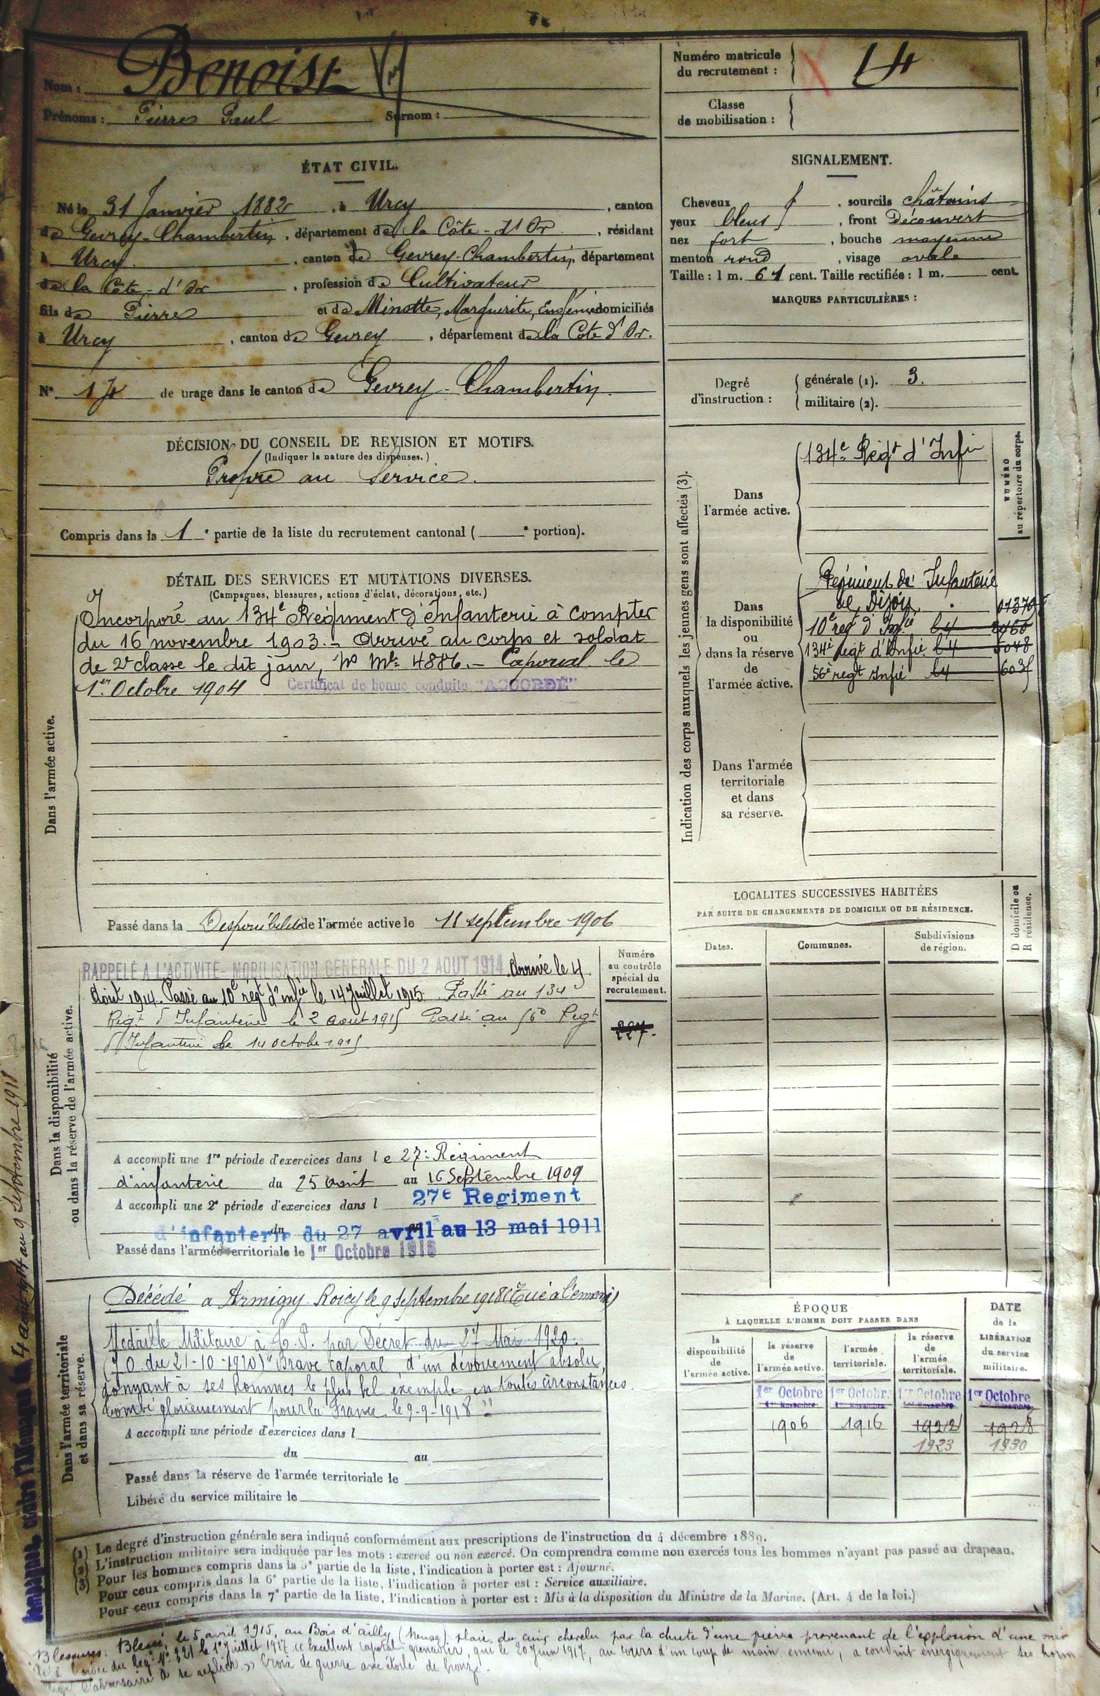 Nom : Benoist
Prénoms : Pierre Paul Surnom :
Numéro matricule
du recrutement :
14
Classe
de mobilisation :
ÉTAT CIVIL.
Né le 31 Janvier 1882, à Urcy, canton
de Gevrey-Chambertin, département de la Côte-d'Or, résidant
à Urcy, canton de Gevrey-Chambertin, département
de la Côte-d'Or, profession de Cultivateur
fils de Pierre et de Minotte, Marguerite, Eugénie domiciliés
à Urcy, canton de Gevrey, département de la Côte d'Or.
N° de tirage dans le canton de Gevrey-Chambertin.
SIGNALEMENT.
Cheveux , sourcils châtains
yeux bleus, front Découvert
nez fort, bouche moyenne
menton rond, visage ovale
Taille : 1 m. 61 cent. Taille rectifiée : 1 m. cent.
MARQUES PARTICULIÈRES :
Degré
d'instruction :
générale (1). 3.
militaire (2).
DÉCISION DU CONSEIL DE REVISION ET MOTIFS.
(Indiquer la nature des dispenses.)
Propre au Service.
Compris dans la 1e partie de la liste du recrutement cantonal ( e portion).
DÉTAIL DES SERVICES ET MUTATIONS DIVERSES.
(Campagnes, blessures, actions d'éclat, décorations, etc.)
Dans l'armée active.
Incorporé au 134e Régiment d'Infanterie à compter
du 16 novembre 1903. - Arrivé au corps et soldat
de 2e classe le dit jour, No Mle 4886. - Caporal le
1er Octobre 1904 Certificat de bonne conduite "ACCORDÉ"
Passé dans la Disponibilité de l'armée active le 11 septembre 1906
Indication des corps auxquels les jeunes gens sont affectés (3).
NUMÉRO
au répertoire du corps.
Dans
l'armée active.
134e Régt d'Infie
Dans
la disponibilité
ou
dans la réserve
de
l'armée active.
Régiment de Infanterie
de Dijon
10e rég d'Infie
134e Régt d'Infie 5048
56e régt Infie
Dans l'armée
territoriale
et dans
sa réserve.
LOCALITÉS SUCCESSIVES HABITÉES
PAR SUITE DE CHANGEMENTS DE DOMICILE OU DE RÉSIDENCE.
Dates.
Communes.
Subdivisions
de région.
D domicile ou
R résidence.
Dans la disponibilité
ou dans la réserve de l'armée active.
RAPPELÉ A L'ACTIVITÉ - MOBILISATION GENERALE DU 2 AOUT 1914. Arrivé le 4
Août 1914. Passé au 10e régt d'Infie le 14 Juillet 1915. Passé au 134
Régt d'Infanterie le 2 août 1915 Passé au 56e Régt
d'Infanterie le 14 octobre 1915
Numéro
au contrôle
spécial du
recrutement.
227.
A accompli une 1re période d'exercices dans le 27e Régiment
d'infanterie du 25 août au 16 Septembre 1909
A accompli une 2e période d'exercices dans l 27e Regiment
d'infanterie du 27 avril au 13 mai 1911
Passé dans l'armée territoriale le 1er Octobre 1916
Dans l'armée territoriale
et dans sa réserve.
Décédé à Armigny Roicy le 9 septembre 1918 (Tué à l'ennemi)
Médaille Militaire à T. P. par Décret du 27 Mai 1920.
(J.O. du 21-10-1920) "Brave caporal d'un dévouement absolu,
donnant à ses hommes le plus bel exemple en toutes circonstances.
Tombé glorieusement pour la France le 9-9-1918"
A accompli une période d'exercices dans l
du au
Passé dans la réserve de l'armée territoriale le
Libéré du service militaire le
ÉPOQUE
À LAQUELLE L'HOMME DOIT PASSER DANS
la
disponibilité
de
l'armée active.
la réserve
de
l'armée active.
l'armée
territoriale.
la réserve
de
l'armée
territoriale.
DATE
de la
LIBÉRATION
du service
militaire.
1er Octobre 1er Octobre 1er Octobre 1er Octobre
1906 1916 1922 1928
1923 1930
(1) Le degré d'instruction générale sera indiqué conformément aux prescriptions de l'instruction du 4 décembre 1889.
(2) L'instruction militaire sera indiquée par les mots : exercé ou non exercé. On comprendra comme non exercés tous les hommes n'ayant pas passé au drapeau.
(3) Pour les hommes compris dans la 5e partie de la liste, l'indication à porter est : Ajourné.
Pour ceux compris dans la 6e partie de la liste, l'indication à porter est : Service auxiliaire.
Pour ceux compris dans la 7e partie de la liste, l'indication à porter est : Mis à la disposition du Ministre de la Marine. (Art. 4 de la loi.)
Campagnes, contre l'Allemagne du 4 août 1914 au 9 Septembre 1918
Blessures. Blessé le 5 avril 1915, au Bois d'ailly (Meuse) plaie du cuir chevelu par la chute d'une pierre provenant de l'explosion d'une mine
du Régt No 221 le 1er juillet 1917 "Excellent caporal grenadier, que le 20 juin 1917, au cours d'un coup de main ennemi, a conduit énergiquement ses hommes
l'adversaire à se replier" Croix de guerre avec étoile de bronze.